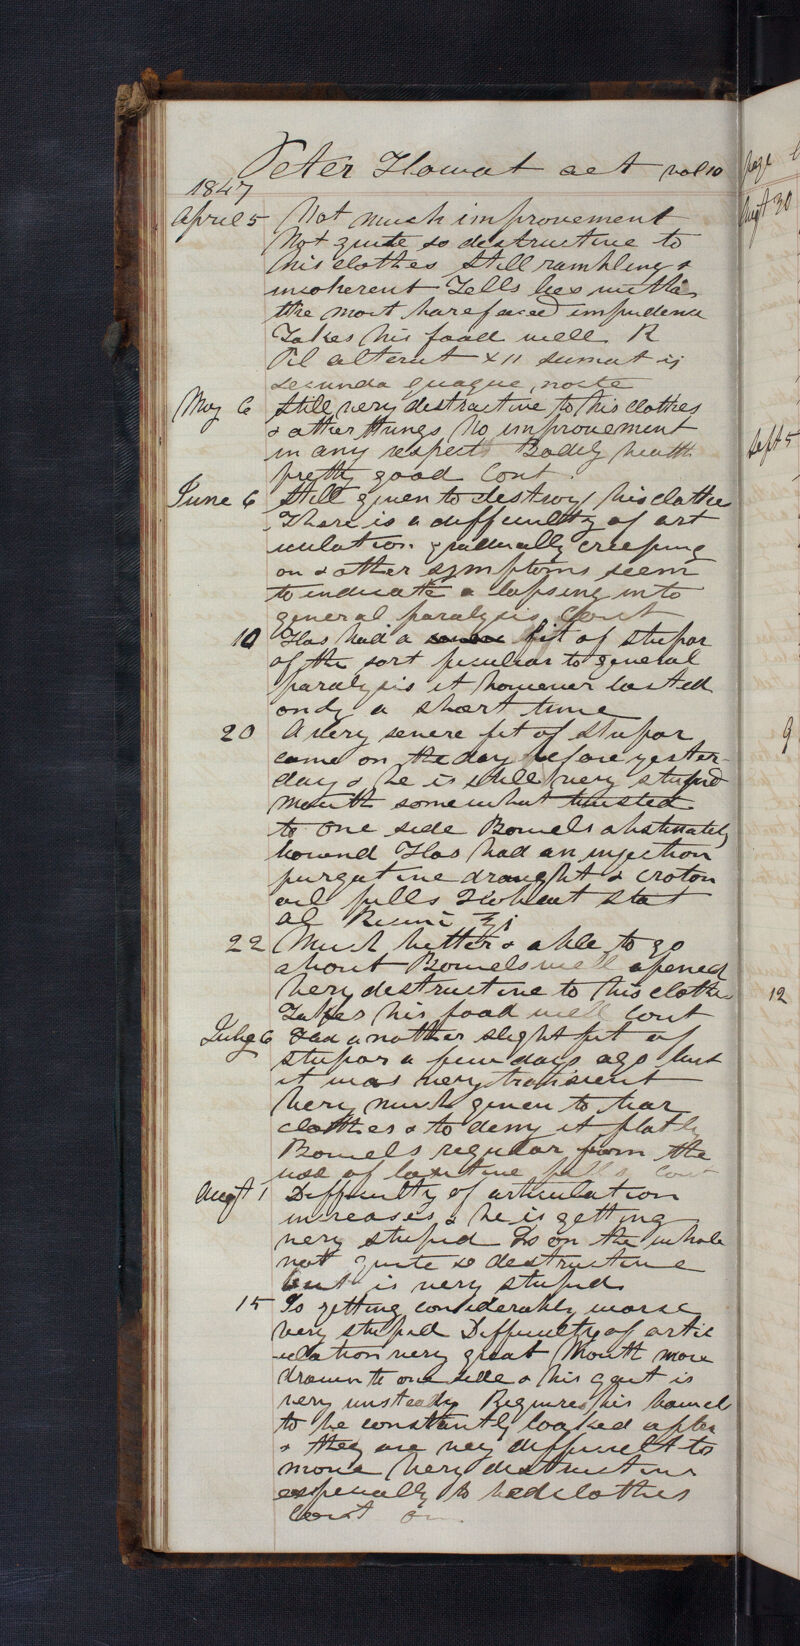 Peter Howat aet vol 10
1847
April 5 Not much improvement
Not quite so destructive to
his clothes Still rambling &
incoherent Tells lies with
the most barefaced impudence
Takes his food well R
Pil alterat x 11 sumat ij
secunda quaque nocte
May 6 Still very destructive to his clothes
& other things No improvement
in any respect Bodily health
pretty good Cont
June 6 Still given to destroy his clothes
There is a difficulty of art
iculation gradually creeping
on & other symptoms seem
to indicate a lapsing into
general paralysis Cont
10 Has had a fit of stupor
of the sort peculiar to general
paralysis it however lasted
only a short time
20 A very severe fit of stupor
came on the day before yester-
day & he is still very stupid
Mouth somewhat twisted
to one side Bowels obstinately
bound Has had an injection
purgative draught & croton
oil pills Habeat stat
Ol Ricini ℥j
22 Much better & able to go
about Bowels well opened
Very destructive to his clothes
Takes his food well Cont
July 6 Had another slight fit of
stupor a few days ago but
it was very transient
Very much given to tear
clothes & to deny it flatly
Bowels regular from the
use of laxative pills Cont
Augt 1 Difficulty of articulation
increases & he is getting
very stupid Is on the whole
not quite so destructive
but is very stupid
15 Is getting considerably worse
very stupid Difficulty of artic
ulation very great Mouth more
drawn to one side & his gait is
very unsteady Requires his bowels
to be constantly looked after
& they are very difficult to
move Very destructive
especially to bedclothes
Cont
page
Augt 30
Sept 5
9
12